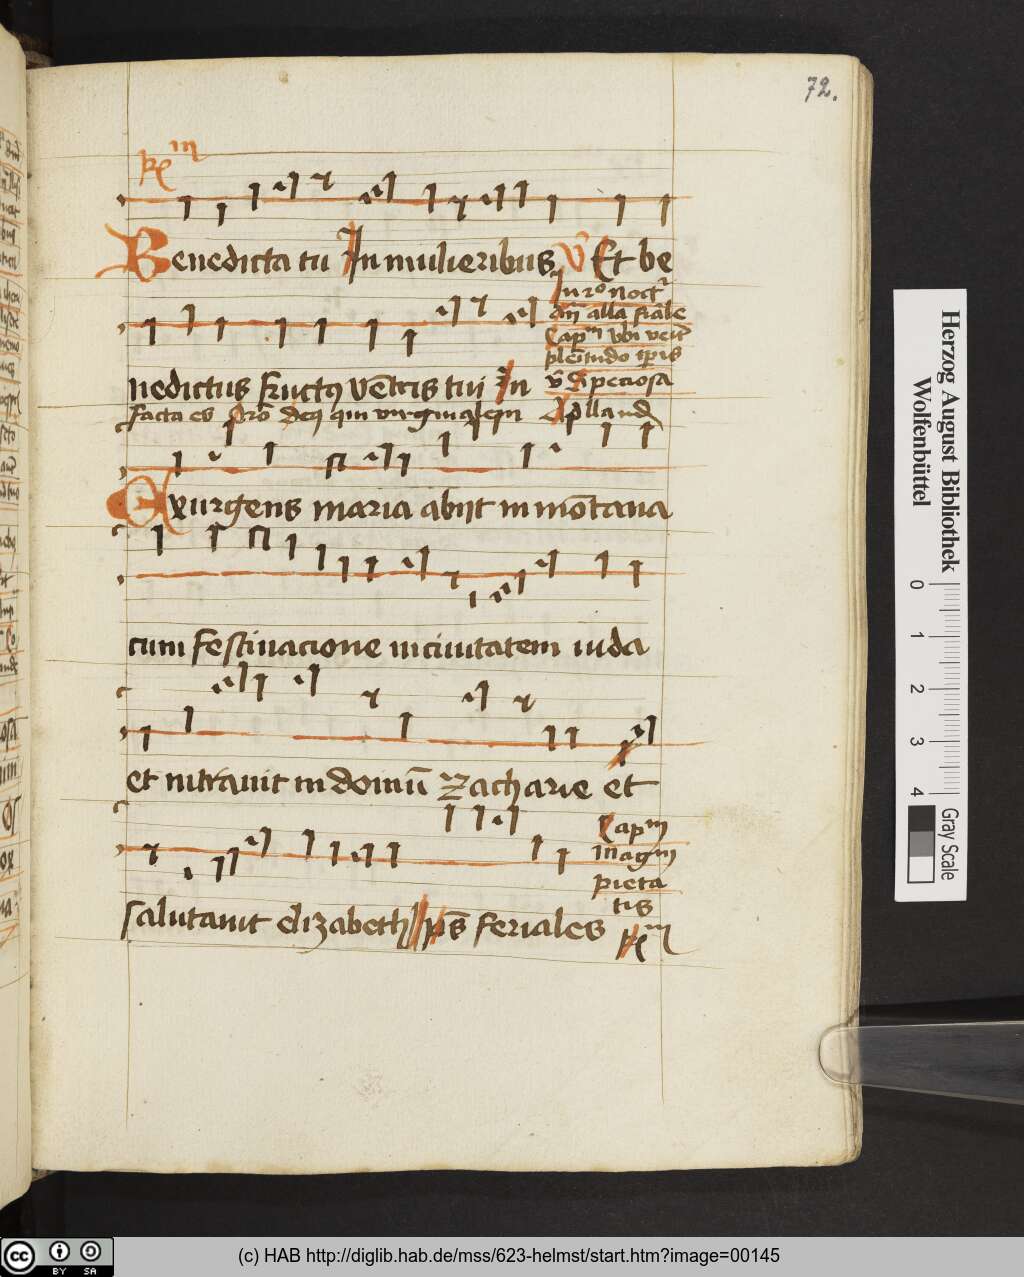 72.
Rm
Benedicta tu In mulieribus V Et be
In 2o noctr
añ alla fiale
Capm Ubi veit
pleitudo tpris
v Speciosa
nedictus fructꝯ vētris tui In
facta es Orō Deꝯ qui virginalem Ap lland
Exurgens maria abijt in mōtana
cum festinacione in ciuitatem iuda
et intrauit in domū Zacharie et
Capm
magni
pieta
tis
salutauit elizabeth ps feriales
Rm
Herzog August Bibliothek
Wolfenbüttel
0 1 2 3 4
Gray Scale
cc BY SA
(c) HAB http://diglib.hab.de/mss/623-helmst/start.htm?image=00145